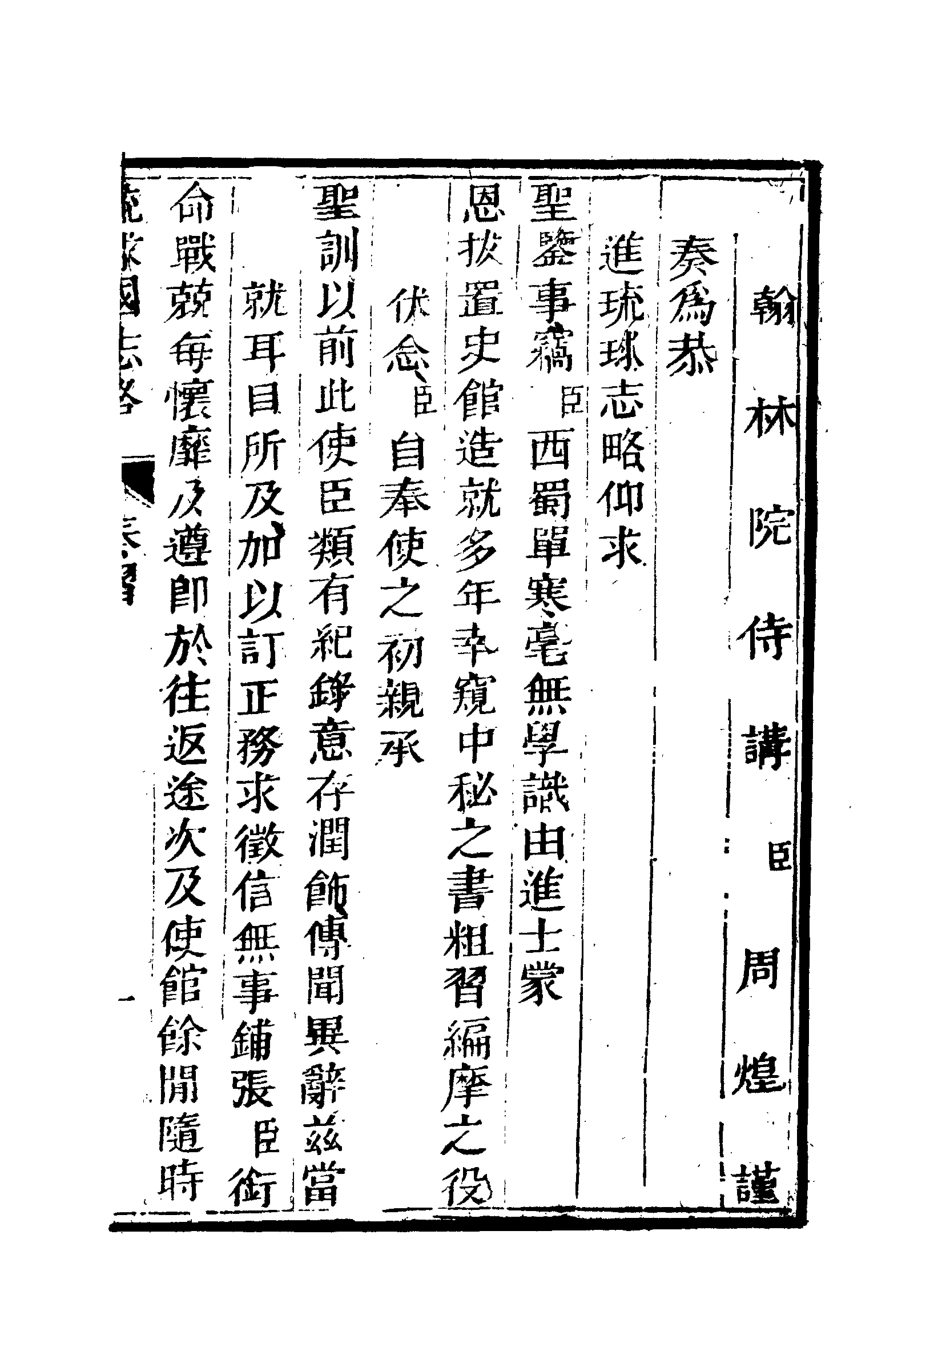 翰林院侍講臣周煌謹
奏爲恭
進琉球志略仰求
聖鑒事竊臣西蜀單寒毫無學識由進士蒙
恩拔置史館造就多年幸窺中秘之書粗習編摩之役
伏念臣自奉使之初親承
聖訓以前此使臣類有紀錄意存潤飾傳聞異辭茲當
就耳目所及加以訂正務求徵信無事鋪張臣銜
命戰兢每懷靡及遵卽於往返途次及使館餘閒隨時
琉球國志略
奏摺
一